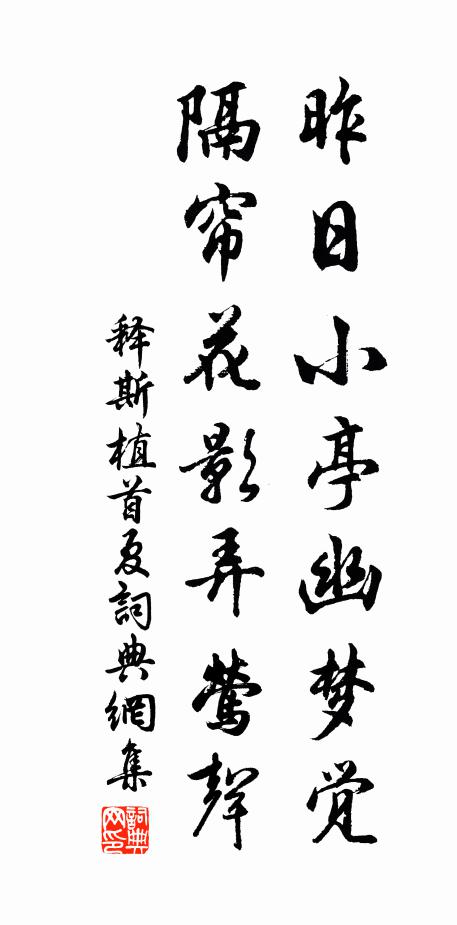 昨日小亭幽梦觉
隔帘花影弄莺聲
释斯植首夏詞典網集
詞典网印